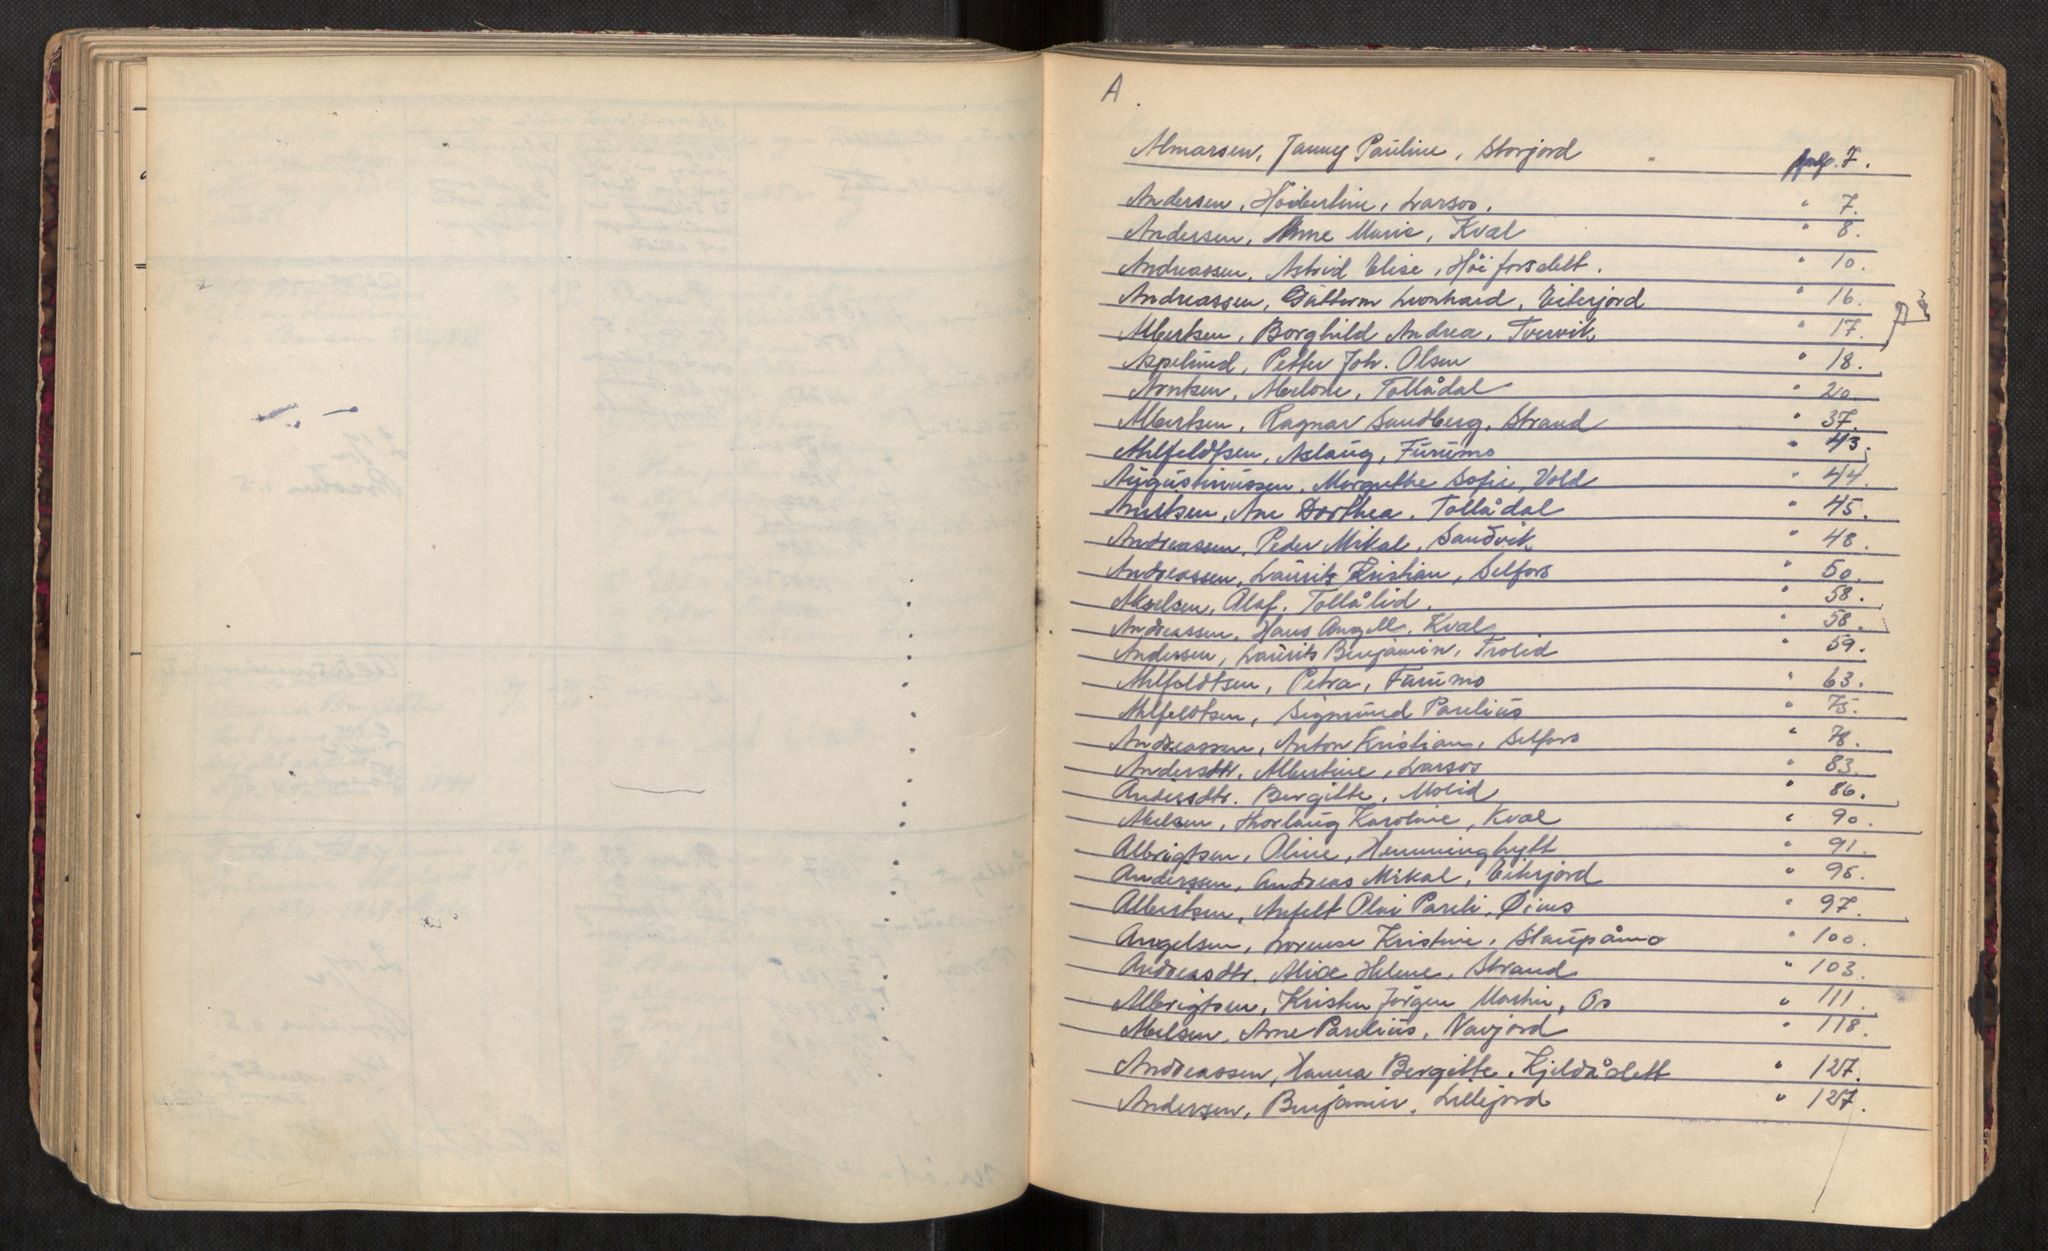 A.
Almarsen, Janny Pauline, Storjord " pag. 7.
Andersen, Höibertine, Larsos. " 7.
Andersen, Arne Marie, Kval " 8.
Andreassen, Astrid Elise, Höiforsslett. " 10.
Andreassen, Guttorm Leonhard, Eiterjord " 16.
Albertsen, Borghild Andrea, Tvervik " 17.
Aspelund, Petter Joh. Olsen " 18.
Arntsen, Abelone, Tollådal " 20
Albertsen, Ragnar Sandberg, Strand " 37.
Ahlfeldtsen, Aslaug, Furumo " 43.
Augustinussen, Margrethe Sofie, Vold " 44.
Arntsen, Ane Dorthea, Tollådal " 45.
Andreassen, Peder Mikal, Sandvik " 48.
Andreassen, Laurits Kristian, Selfors " 50.
Akselsen, Olaf. Tollålid. " 58.
Andreassen, Hans Angell, Kval " 58.
Andersen, Laurits Benjamin, Trolid " 59.
Ahlfeldtsen, Petra, Furumo " 63.
Ahlfeldtsen, Sigmund Parelius " 75.
Andreassen, Anton Kristian, Selfors " 78.
Andersdtr. Albertine, Larsos " 83.
Andersdtr. Bergitte, Molid " 86.
Abelsen, Thorlaug Karoline, Kval " 90.
Albrigtsen, Oline, Hemminghytt " 91.
Anderssen, Andreas Mikal, Eiterjord " 95.
Albertsen, Anfelt Olai Pareli, " 97.
Angelsen, Lorense Kristine, Staupåmo " 100.
Andreasdtr. Alice Helene, Strand " 103.
Albrigtsen, Kristen Jörgen Martin, Os " 111.
Abelsen, Arne Parelius, Navjord " 118.
Andreassen, Hanna Bergitte, Kjeldåslett " 127.
Andersen, Benjamin, Lillejord " 127.